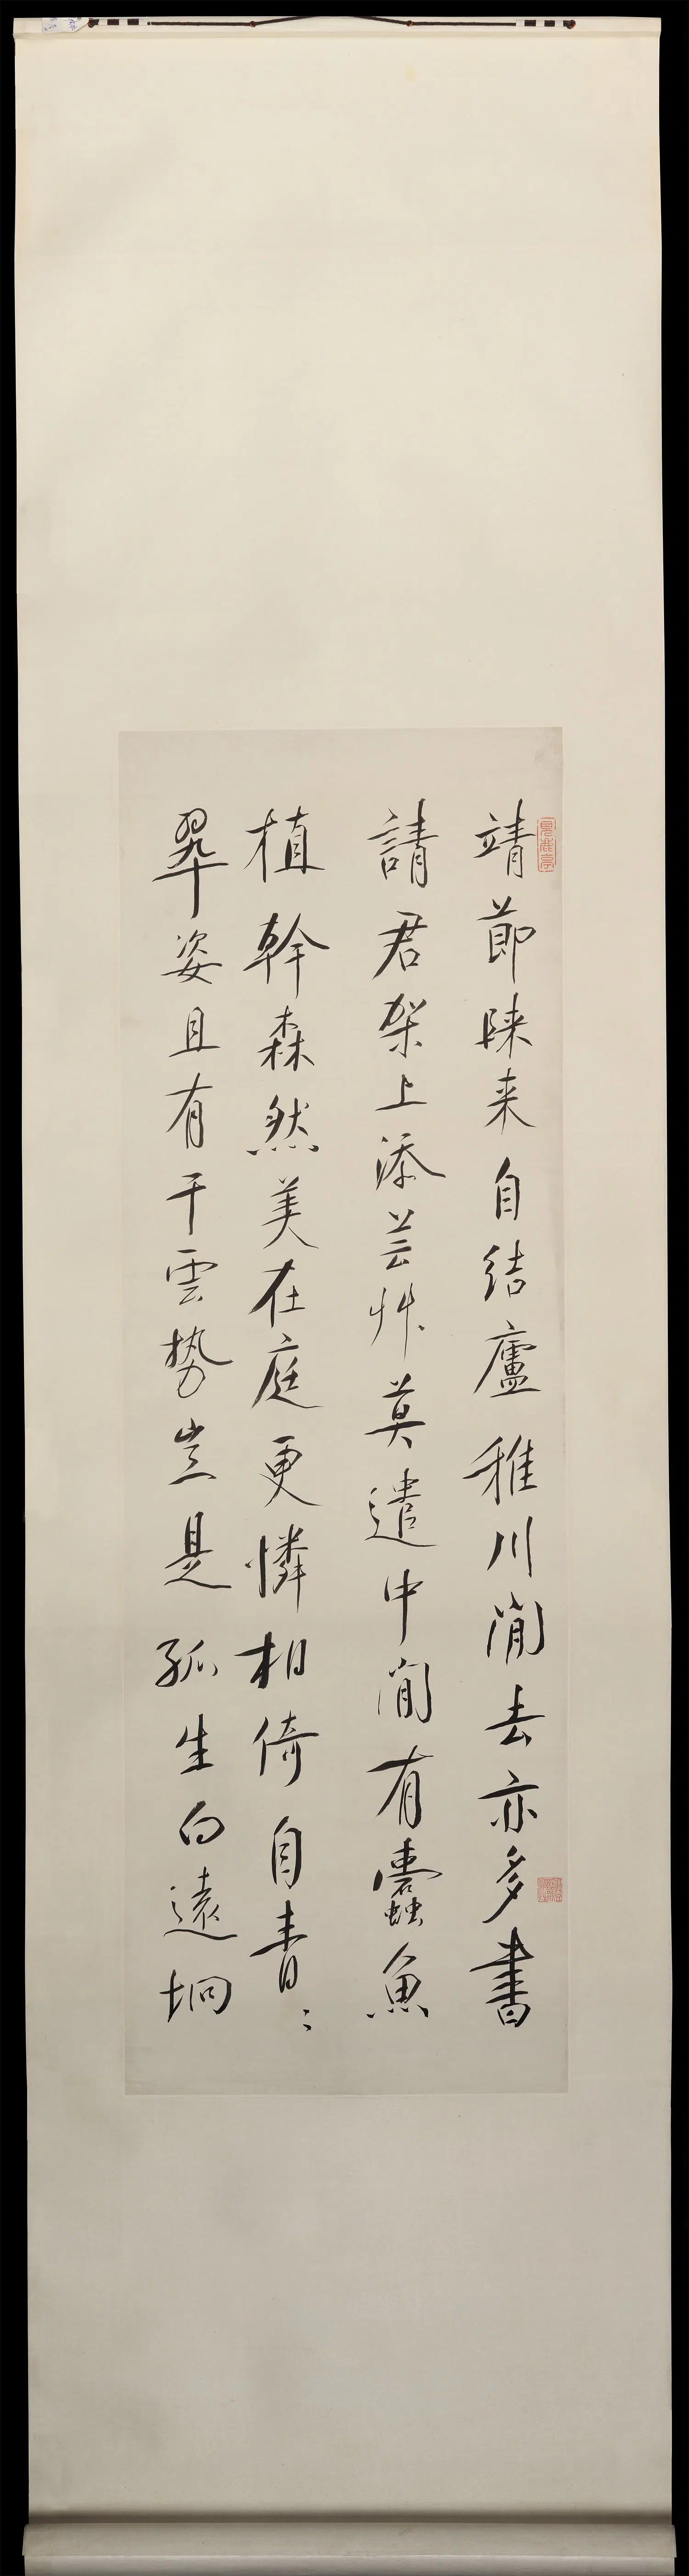 靖節歸来自結廬稚川閒去亦多書
請君架上添芸艸莫遣中閒有蠹魚
植幹森然美在庭更憐相倚自青〻
翠姿且有干雲勢豈是孤生向遠坰